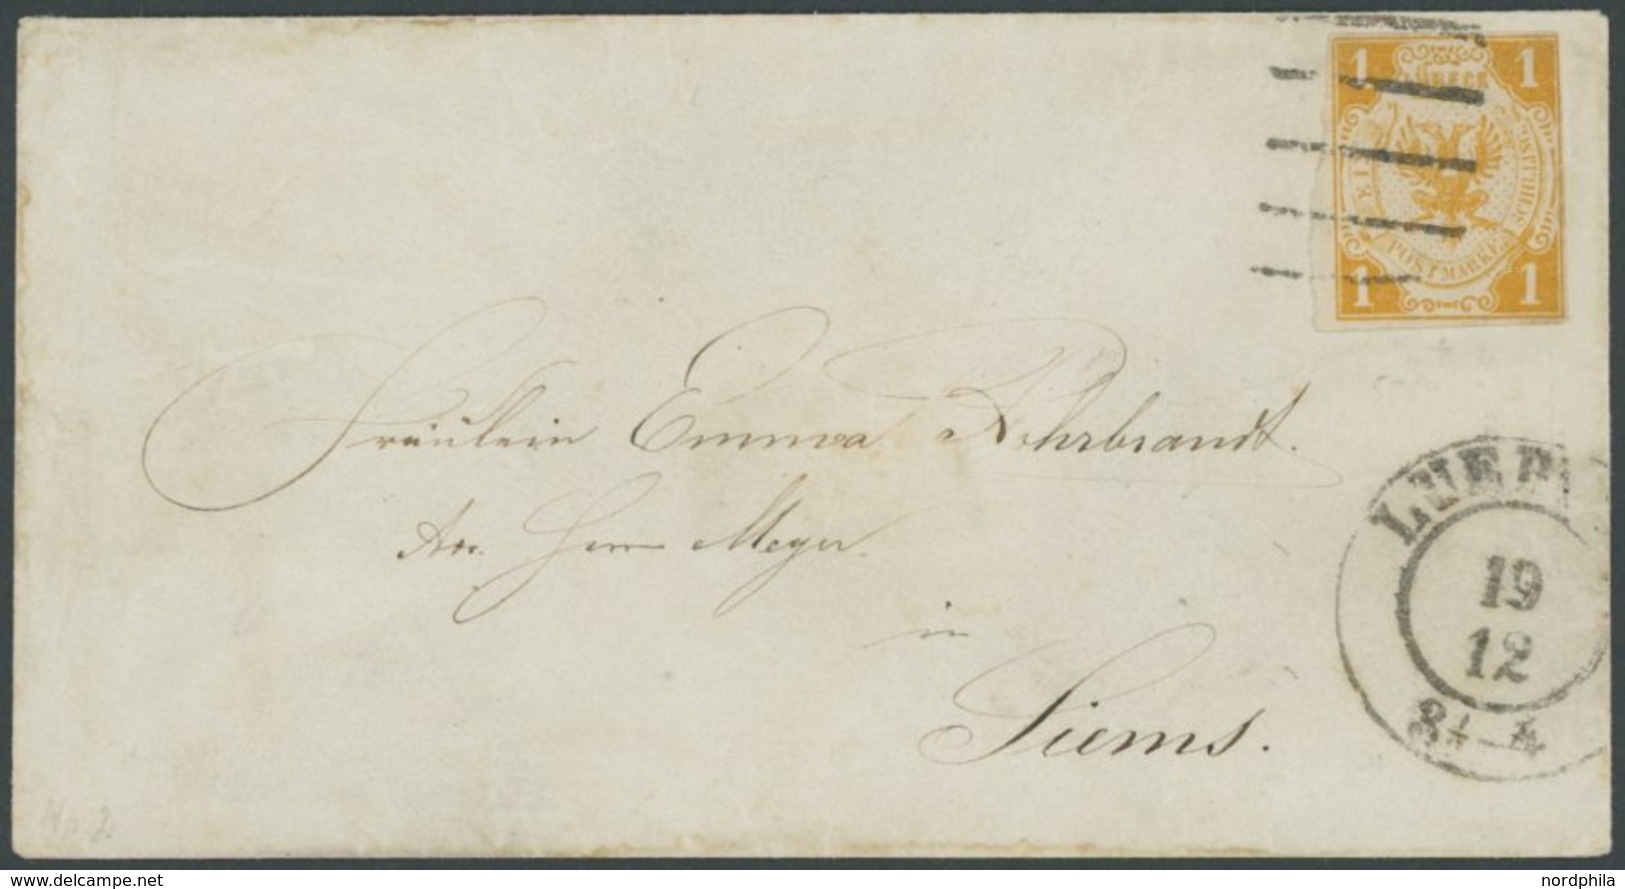 1 LÜBECK 1
EIN
POSTMARKE
1 1
Fräulein Emma Rehrbrandt.
An. Herrn Meyer.
in
Siems.
LUEB
19
12
3½-4
No 2
www.delcampe.net
nordphila